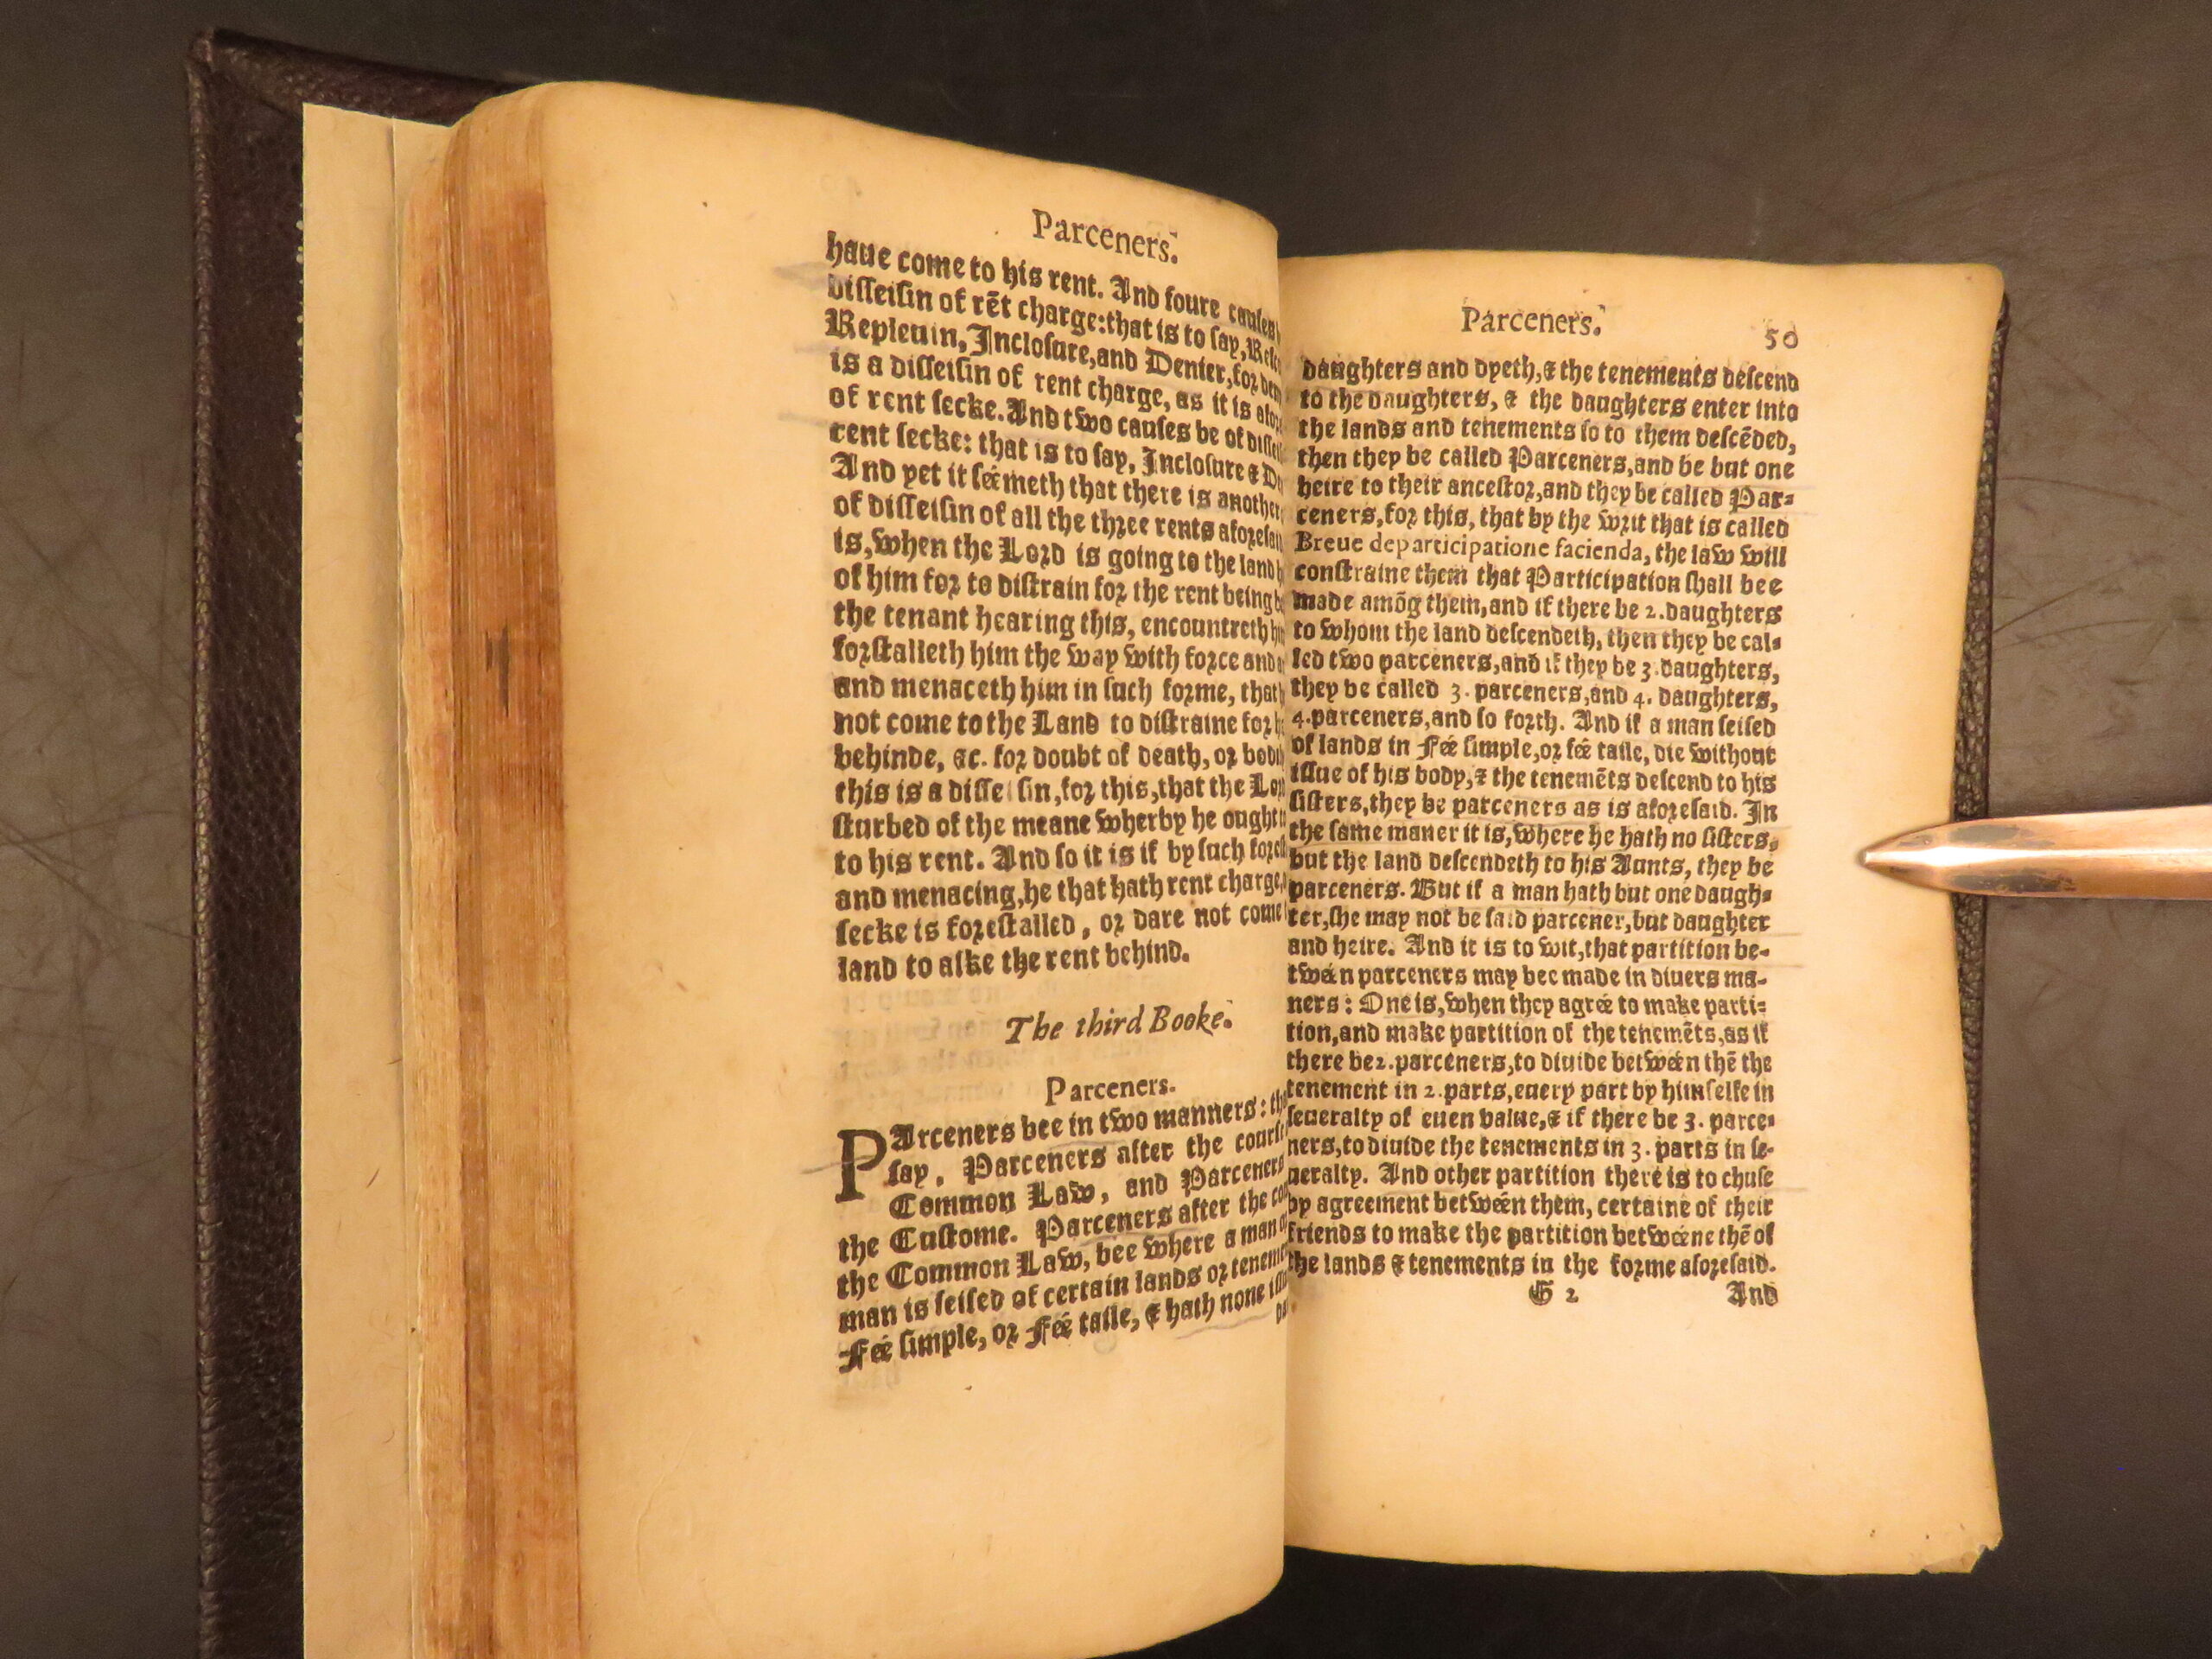 Parceners.
haue come to his rent. And foure causes
disseisin of rēt charge: that is to say,
Repleuin, Inclosure, and Denier, for
is a disseisin of rent charge, as it is
of rent secke. And two causes be of
rent secke: that is to say, Inclosure &
And yet it séemeth that there is another
of disseisin of all the three rents
is, when the Lord is going to the land
of him for to distrain for the rent being
the tenant hearing this, encountreth
forstalleth him the way with force and
and menaceth him in such forme, that
not come to the Land to distraine for
behinde, &c. for doubt of death, or
this is a disseisin, for this, that the
sturbed of the meane wherby he ought
to his rent. And so it is if by such
and menacing, he that hath rent charge,
secke is forestalled, or dare not come
land to aske the rent behind.
The third Booke.
Parceners.
PArceners bee in two manners:
say, Parceners after the course
Common Law, and Parceners
the Custome. Parceners after the
the Common Law, bee where a man
man is seised of certain lands or
Fée simple, or Fée taile, & hath none
Parceners.
50
daughters and dyeth, & the tenements descend
to the daughters, & the daughters enter into
the lands and tenements so to them descēded,
then they be called Parceners, and be but one
heire to their ancestor, and they be called Par-
ceners, for this, that by the writ that is called
Breue departicipatione facienda, the law will
constraine them that Participation shall bee
made amōg them, and if there be 2. daughters
to whom the land descendeth, then they be cal-
led two parceners, and if they be 3. daughters,
they be called 3. parceners, and 4. daughters,
4. parceners, and so forth. And if a man seised
of lands in Fée simple, or fée taile, die without
issue of his body, & the tenemēts descend to his
sisters, they be parceners as is aforesaid. In
the same maner it is, where he hath no sisters,
but the land descendeth to his Aunts, they be
parceners. But if a man hath but one daugh-
ter, she may not be said parcener, but daughter
and heire. And it is to wit, that partition be-
twéen parceners may bee made in diuers ma-
ners: One is, when they agrée to make parti-
tion, and make partition of the tenemēts, as if
there be 2. parceners, to diuide betwéen thē the
tenement in 2. parts, euery part by himselfe in
seueralty of euen value, & if there be 3. parce-
ners, to diuide the tenements in 3. parts in se-
ueralty. And other partition there is to chuse
by agreement betwéen them, certaine of their
friends to make the partition betwéene thē of
the lands & tenements in the forme aforesaid.
G 2 And